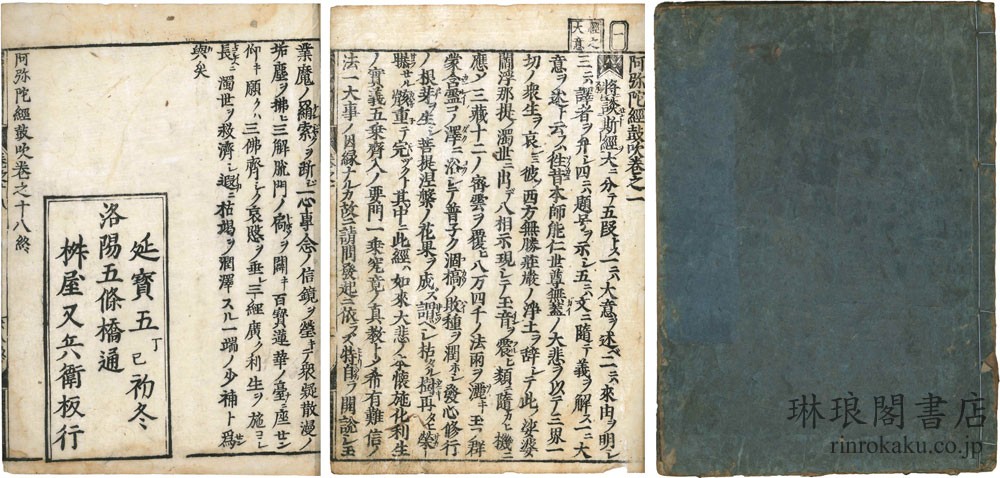 阿弥陀經鼓吹卷之一
一
經之
大意
將談斯經大ニ分テ五段トス一ニハ大意ヲ述二ニハ來由ヲ明シ
三ニハ譯者ヲ弁シ四ニハ題号ヲ示シ五ニハ文ニ隨テ義ヲ解ス一ニ大
意ヲ述ト云フハ往昔本師能仁世尊無蓋ノ大悲ヲ以テ三界一
切ノ衆生ヲ哀ミ彼ノ西方無勝莊嚴ノ浄土ヲ辞シテ此ノ娑婆
閻浮那提ノ濁世ニ出テ八相示現シテ玉音ヲ震ヒ類ニ隨カヒ機ニ
應シ三藏十二ノ密雲ヲ覆ヒ八万四千ノ法雨ヲ灑キ玉ヒ群
蒙含霊コノ澤ニ浴シテ普子ク涸槁ノ敗種ヲ潤ホシ發心修行
ノ根芽ヲ生シ菩提涅槃ノ花果ヲ成ス謂ヘシ枯タル樹再ヒ榮ヘ
骸重テ完其中ニ此經ハ如來大悲ノ本懷施化利生
ノ實義五乗齊入ノ要門一乗究竟ノ真教トシテ希有難信ノ
法一大事ノ因縁ナルカ故ニ請問發起ニ依ラズ特自ヲ開說シ玉
業魔ノ羂索ヲ断シ一心專念ノ信鏡ヲ瑩キテ衆疑散漫ノ
垢塵ヲ拂ヒ三解脱門ノ局ヲ開キ百寶蓮華ノ臺ニ座セン
仰キ願クハ三佛齊シク哀愍ヲ垂レ三經廣ク利生ヲ施コシ
長ニ濁世ヲ救濟シ遐ニ枯竭ヲ潤澤スル一端ノ少補ト爲ン
與矣
阿弥陀經鼓吹卷之十八終
延寶五丁巳初冬
洛陽五條橋通
桝屋又兵衛板行
琳琅閣書店
rinrokaku.co.jp